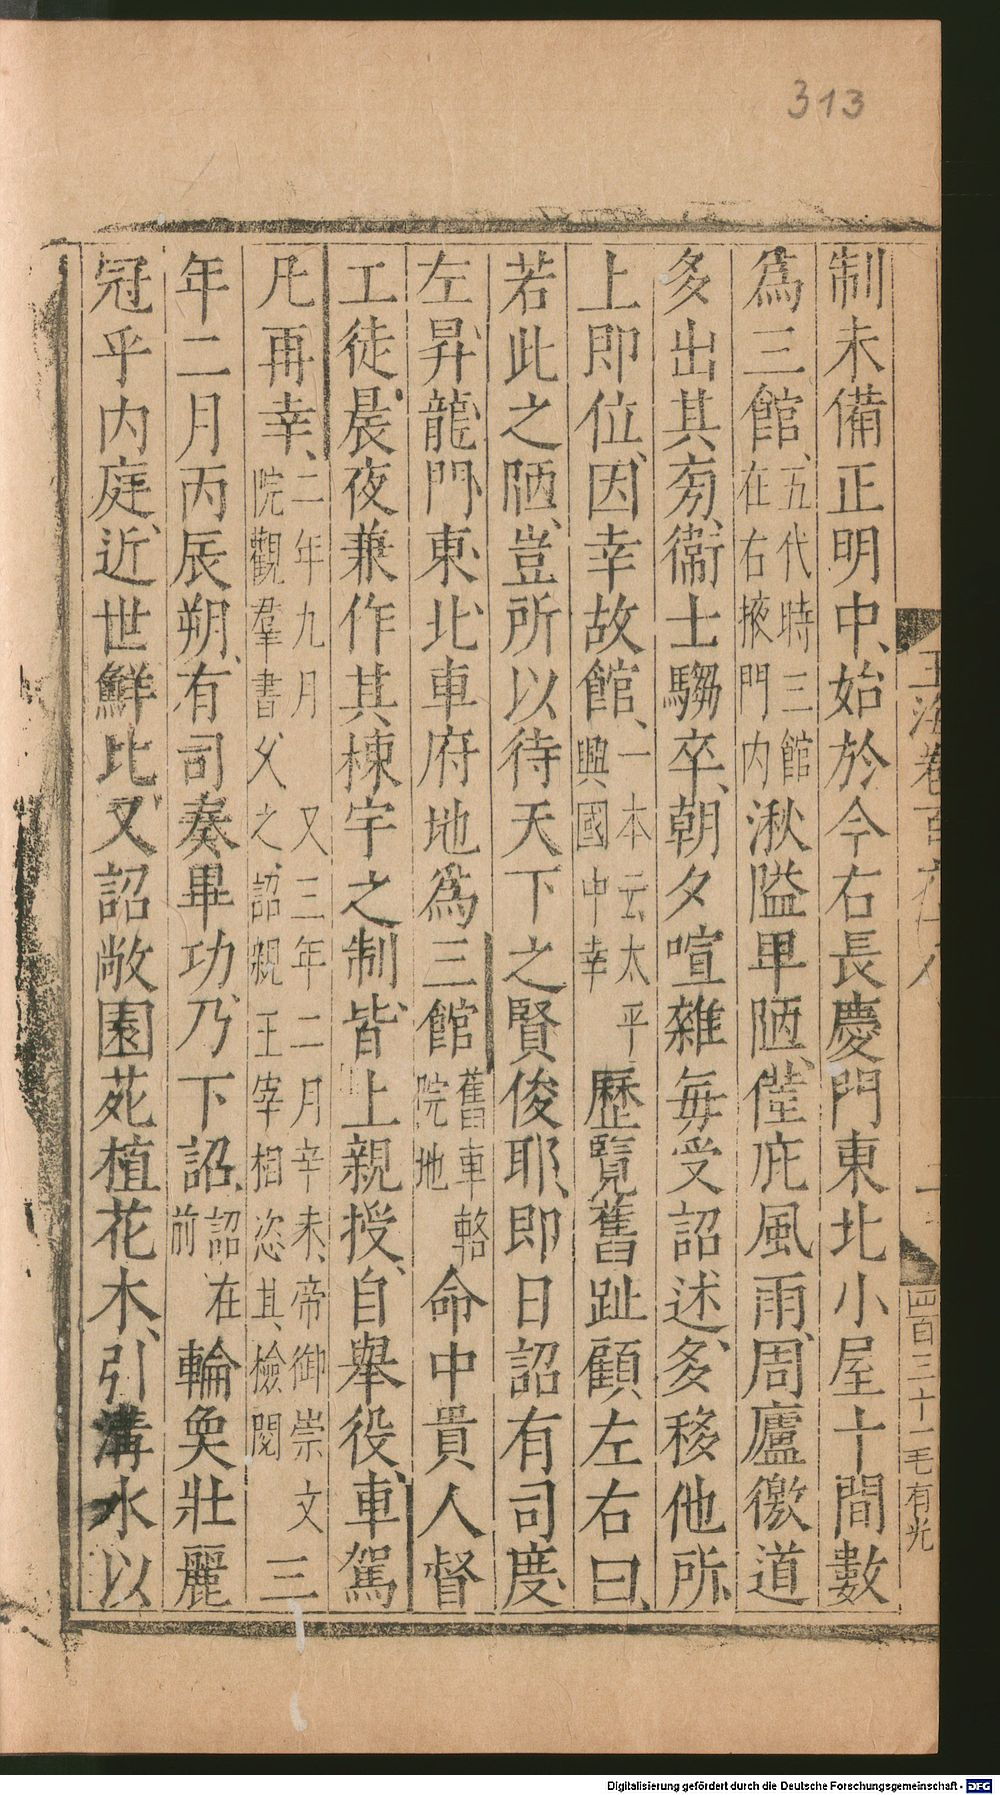 313
制未備正明中始於今右長慶門東北小屋十間數
爲三館五代時三館在右掖門内湫隘卑陋僅庇風雨周廬徼道
多出其旁衞士騶卒朝夕喧雜每受詔述多移他所
上即位因幸故館一本云太平興國中幸歷覽舊趾顧左右曰
若此之陋豈所以待天下之賢俊耶即日詔有司度
左昇龍門東北車府地爲三館舊車輅院地命中貴人督
工徒晨夜兼作其棟宇之制皆上親授自舉役車駕
凡再幸二年九月又三年二月辛未帝御崇文院觀羣書父之詔親王宰相恣其檢閱三
年二月丙辰朔有司奏畢功乃下詔詔在前輪奐壯麗
冠乎内庭近世鮮比又詔敞園苑植花木引溝水以
玉海卷百六十八
四百三十一毛有光
Digitalisierung gefördert durch die Deutsche Forschungsgemeinschaft - DFG